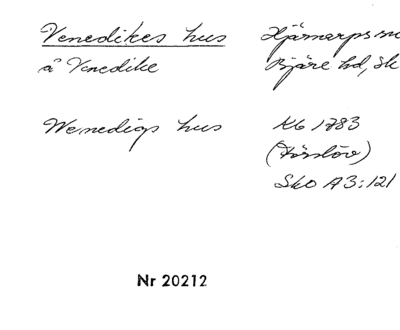 Venedikes hus
Hjärnarps sn
å Venedike
Bjäre hd, Sk
Wenedigs hus
KG 1783
(Förslöv)
Sko A3:121
Nr 20212